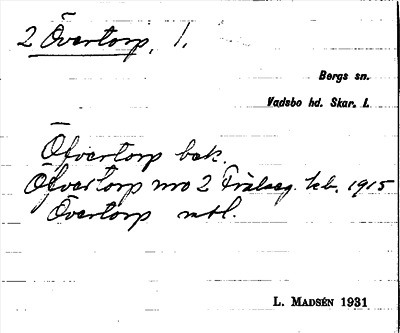 2 Övertorp, 1.
Bergs sn.
Vadsbo hd. Skar. L
Öfvertorp bek.
Öfvertorp nro 2 Frälseg. kb. 1915
Övertorp mtl.
L. MADSÉN 1931